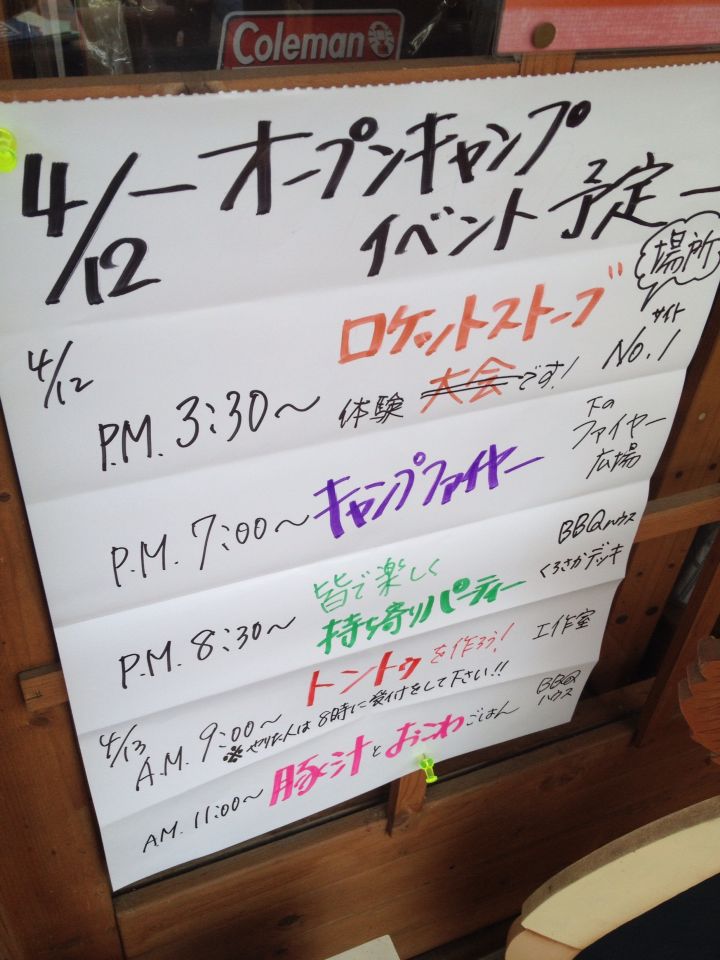 Coleman
4/12 ーオープンキャンプ
イベント予定ー
場所
4/12
P.M. 3:30～
ロケットストーブ
体験 大会です!
サイト
No.1
P.M. 7:00～ キャンプファイヤー
下の
ファイヤー
広場
P.M. 8:30～
皆で楽しく
持ち寄りパーティー
BBQハウス
くろさかデッキ
4/13
A.M. 9:00～
トントゥを作ろう!
※やりたい人は8時に受付をして下さい!!
工作室
A.M. 11:00～ 豚汁とおこわごはん
BBQ
ハウス